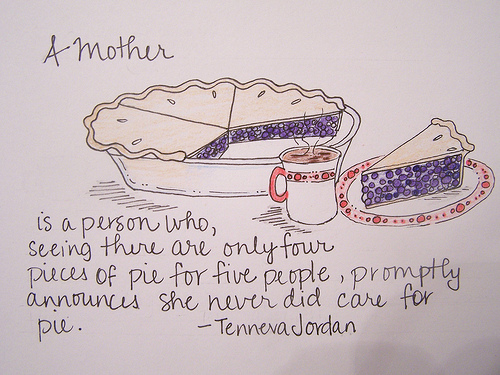 A Mother
is a person who,
seeing there are only four
pieces of pie for five people, promptly
announces she never did care for
pie. -Tenneva Jordan